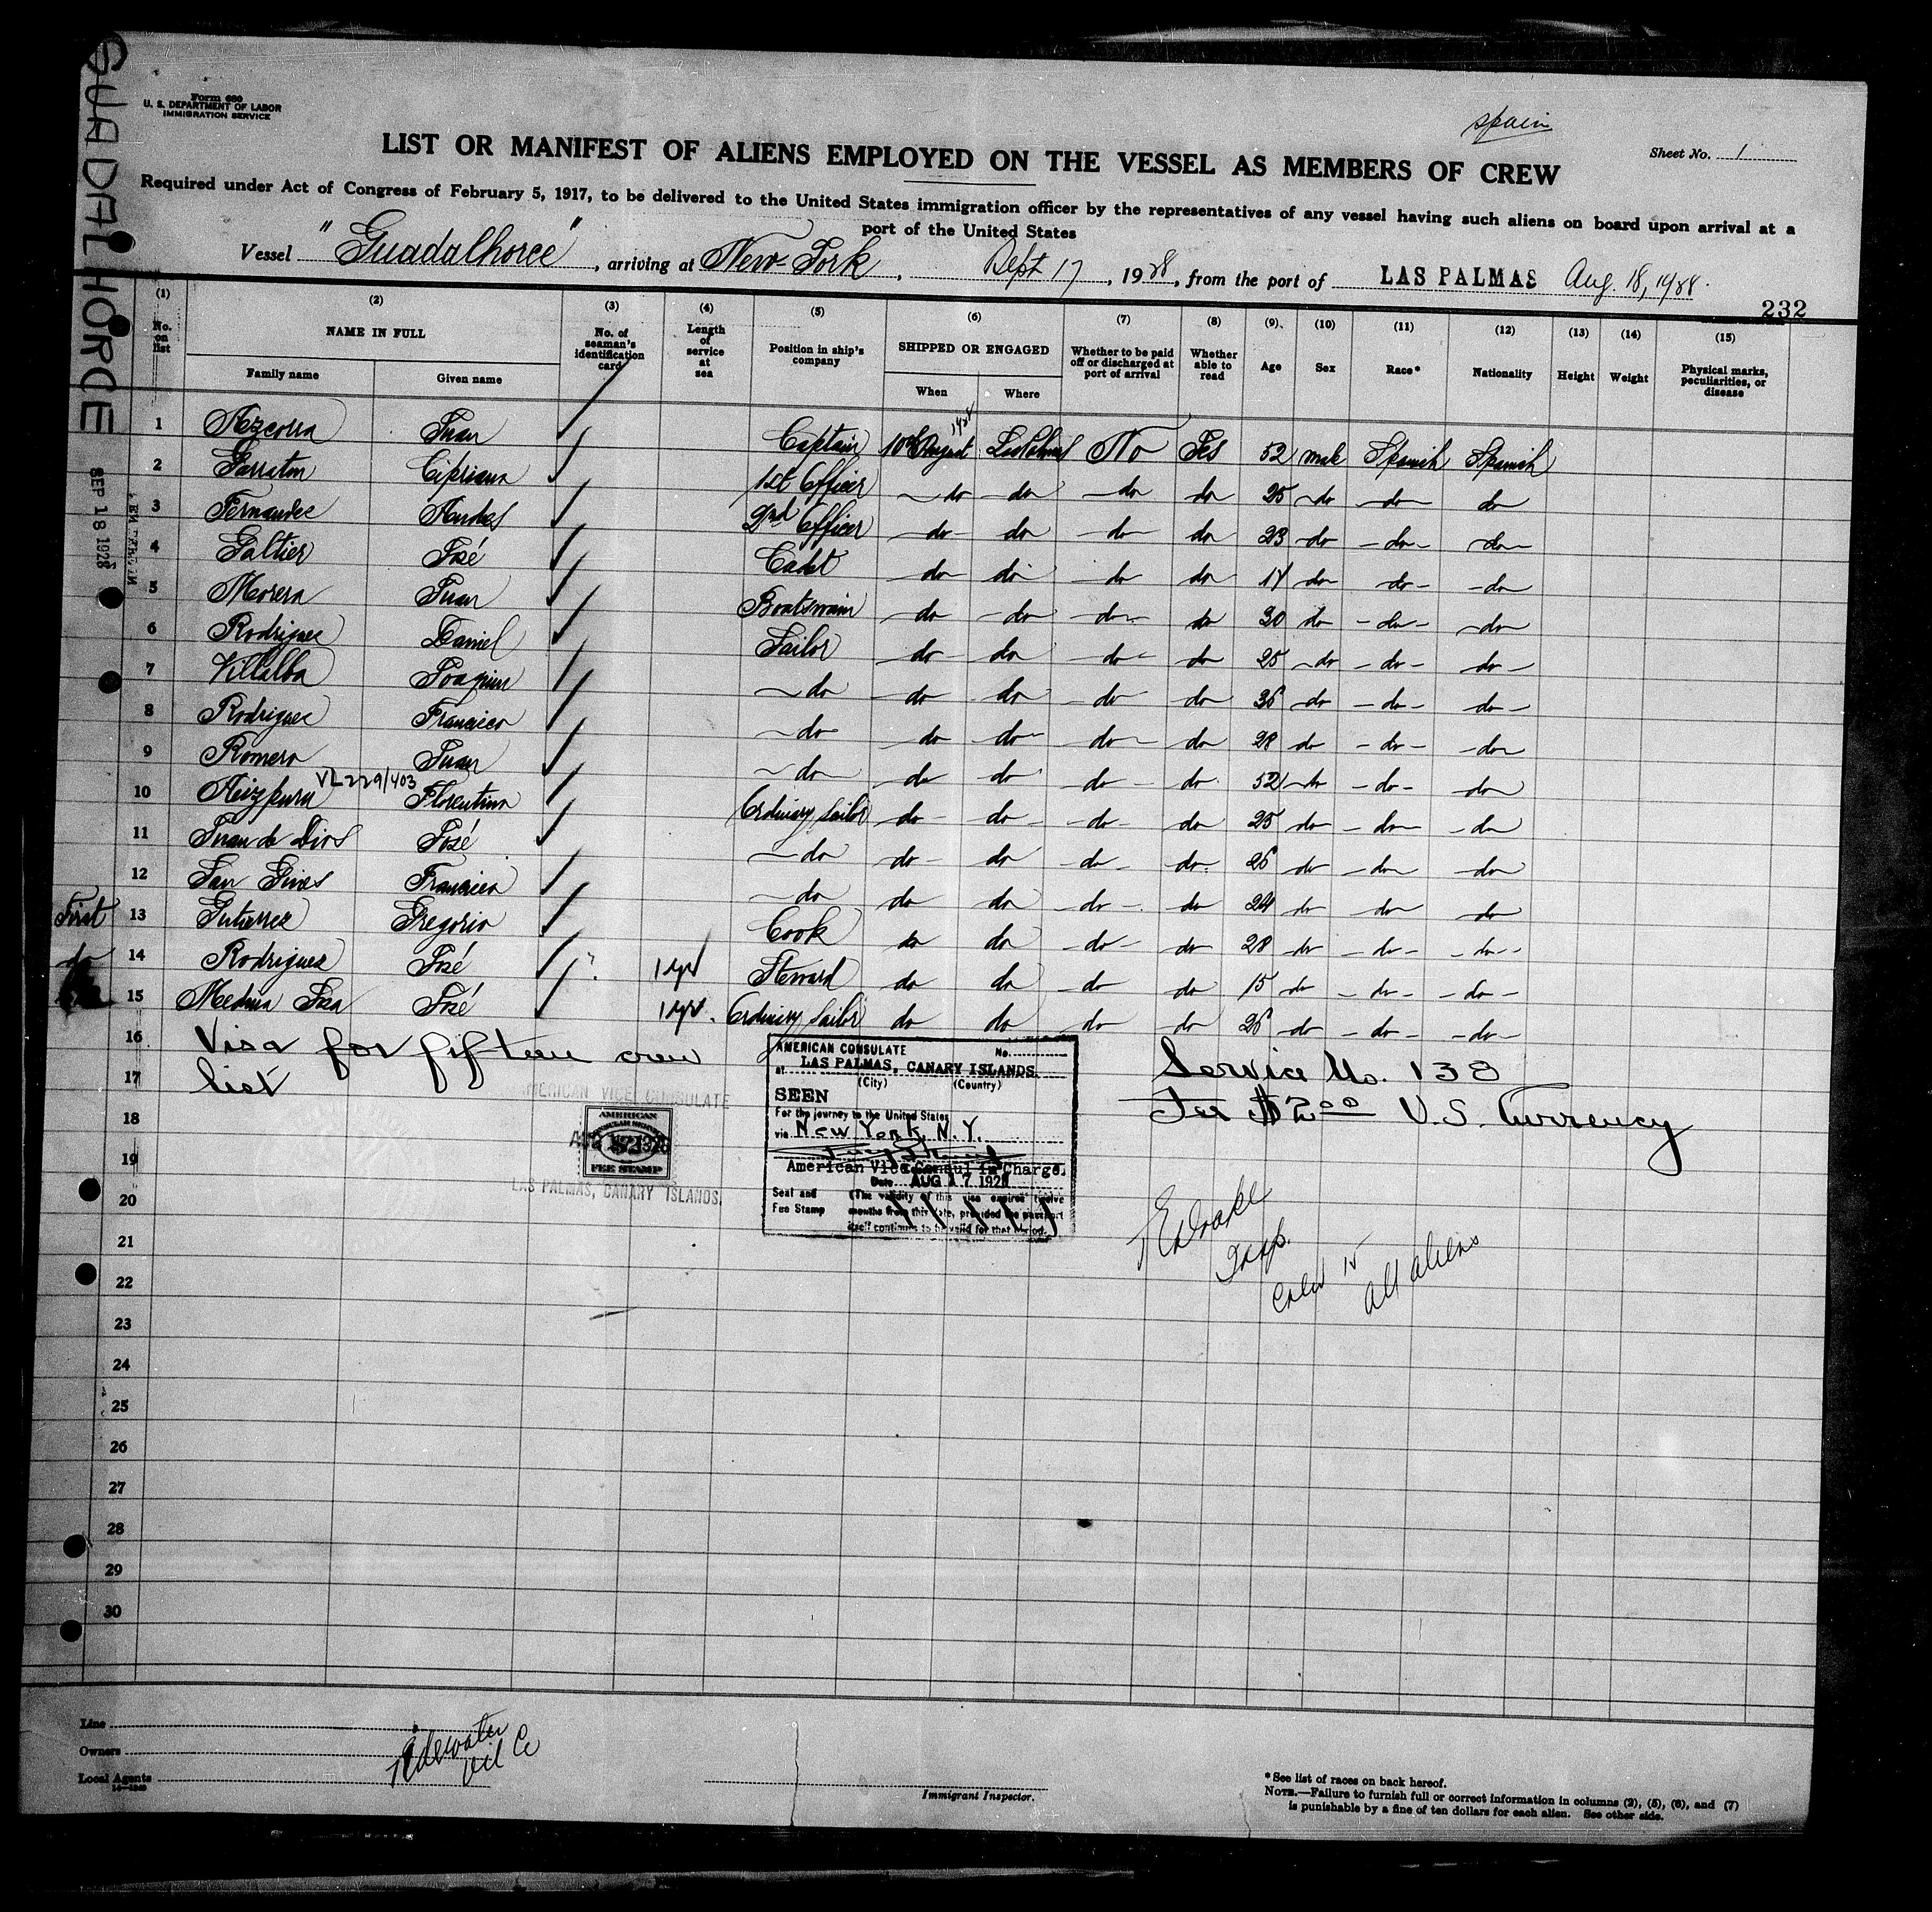 GUADALHORCE
SEP 18 1928
Form 680
U. S. DEPARTMENT OF LABOR
IMMIGRATION SERVICE
Spain
Sheet No. 1
LIST OR MANIFEST OF ALIENS EMPLOYED ON THE VESSEL AS MEMBERS OF CREW
Required under Act of Congress of February 5, 1917, to be delivered to the United States immigration officer by the representatives of any vessel having such aliens on board upon arrival at a
port of the United States
Vessel "Guadalhorce", arriving at New York, Sept 17, 1928, from the port of LAS PALMAS Aug. 18, 1928.
232
(1) (2) (3) (4) (5) (6) (7) (8) (9) (10) (11) (12) (13) (14) (15)
No. on list NAME IN FULL No. of seaman's identification card Length of service at sea Position in ship's company SHIPPED OR ENGAGED Whether to be paid off or discharged at port of arrival Whether able to read Age Sex Race* Nationality Height Weight Physical marks, peculiarities, or disease
Family name Given name When Where
1 Azcorra Juan Captain 10th August 1928 Las Palmas No Yes 52 male Spanish Spanish
2 Garraton Cipriano 1st Officer do do do do 25 do do do
3 Fernandez Andres 2nd Officer do do do do 23 do do do
4 Galtier José Cadet do do do do do do do
5 Morera Juan Boatswain do do do do 30 do do do
6 Rodriguez Daniel Sailor do do do do 25 do do do
7 Villalba Joaquin do do do do do 36 do do do
8 Rodriguez Francisco do do do do do 28 do do do
9 Romero Juan do do do do do 52 do do do
VL 229/403
10 Aizpuru Florentino Ordinary Sailor do do do do 25 do do do
11 Juan de Dios José do do do do do 26 do do do
12 San Gines Francisco do do do do do 24 do do do
First 13 Gutierrez Gregorio Cook do do do do 28 do do do
do 14 Rodriguez José ? 1 yr Steward do do do do 15 do do do
15 Medina Sosa José 1 yr. Ordinary Sailor do do do do 26 do do do
16 Visa for fifteen crew
17 list
18
19
20
21
22
23
24
25
26
27
28
29
30
AMERICAN VICE CONSULATE
AMERICAN
CONSULAR SERVICE
$2
FEE STAMP
LAS PALMAS, CANARY ISLANDS.
AMERICAN CONSULATE No.
at LAS PALMAS, CANARY ISLANDS.
(City) (Country)
SEEN
For the journey to the United States
via New York, N.Y.
American Vice Consul in Charge.
Date AUG 17 1928
Seal and Fee Stamp
(The validity of this visa expires twelve
months from this date, provided the passport
itself continues to be valid for that period.
Service No. 138
Fee $2.00 U.S. Currency
Drake
Insp.
Crew 15
all aliens
Line
Owners
Local Agents
14-1240
Tidewater
Oil Co
Immigrant Inspector.
* See list of races on back hereof.
NOTE.—Failure to furnish full or correct information in columns (2), (5), (6), and (7)
is punishable by a fine of ten dollars for each alien. See other side.